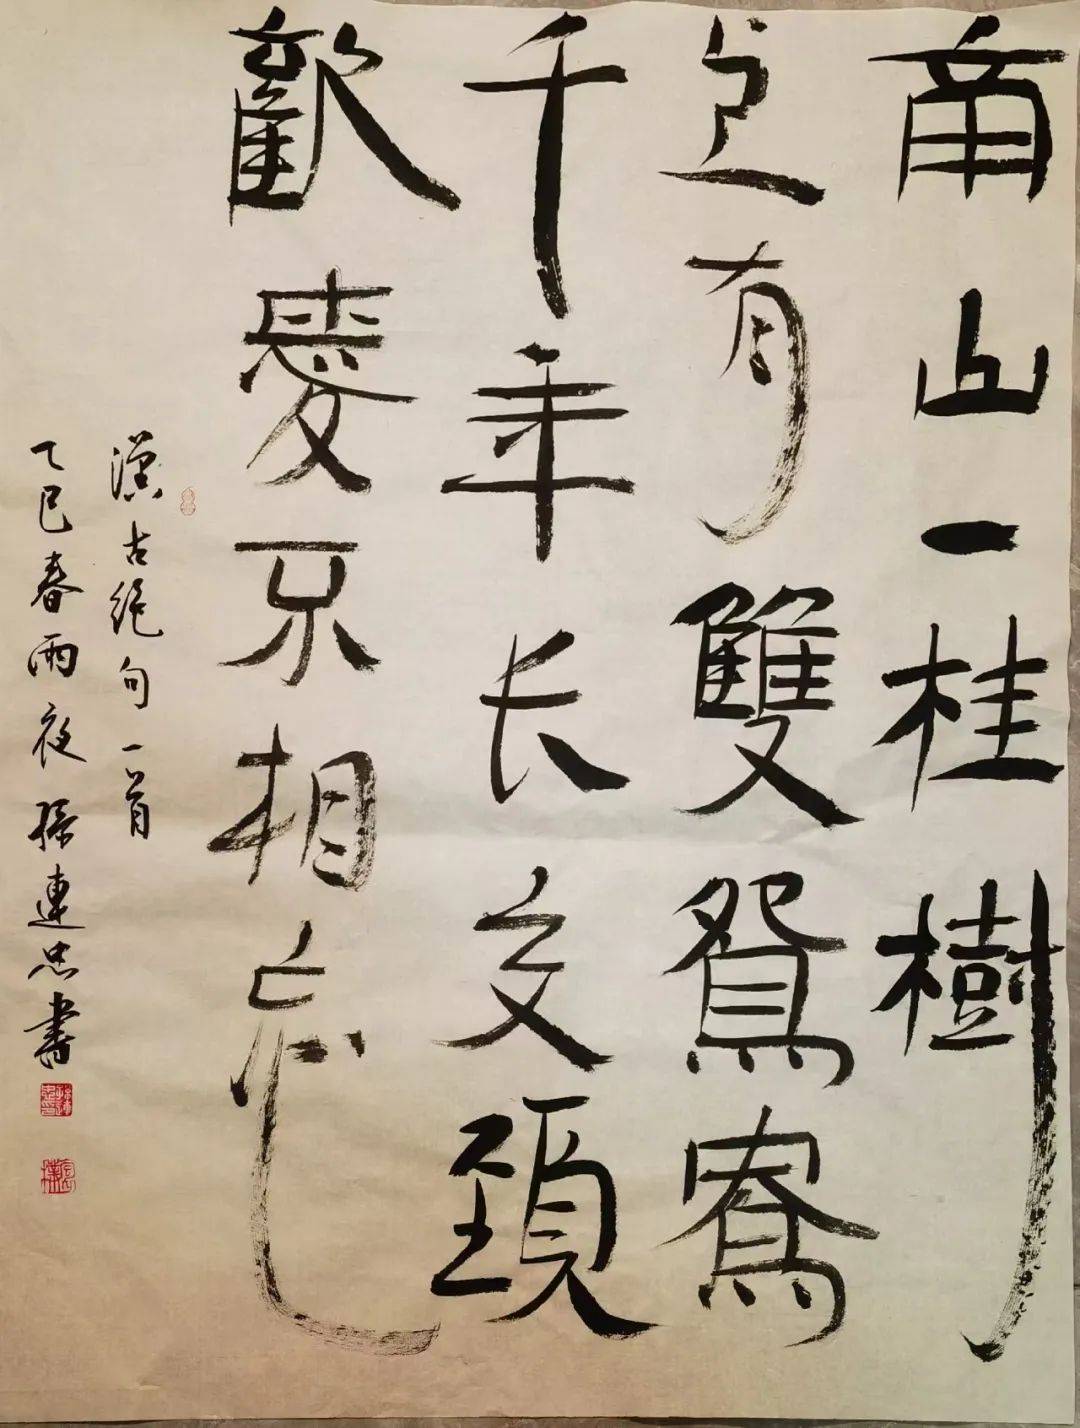 南山一桂樹
上有雙鴛鴦
千年长交頸
歡愛不相忘
漢古絕句一首
乙巳春雨夜 連忠書